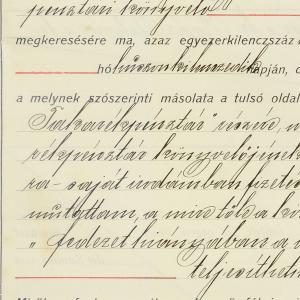 pénztári könyvelő
megkeresésére ma, azaz egyezerkilenczszáz
hó huszonkilenczedik napján, c
a melynek szószerinti másolata a tulsó oldal
Takarékpénztár" részére,
rékpénztár könyvelőjének
ra - saját irodámban fizeté
mutattam, a mire tőle a k
„fedezet hiányzában a
teljesithet